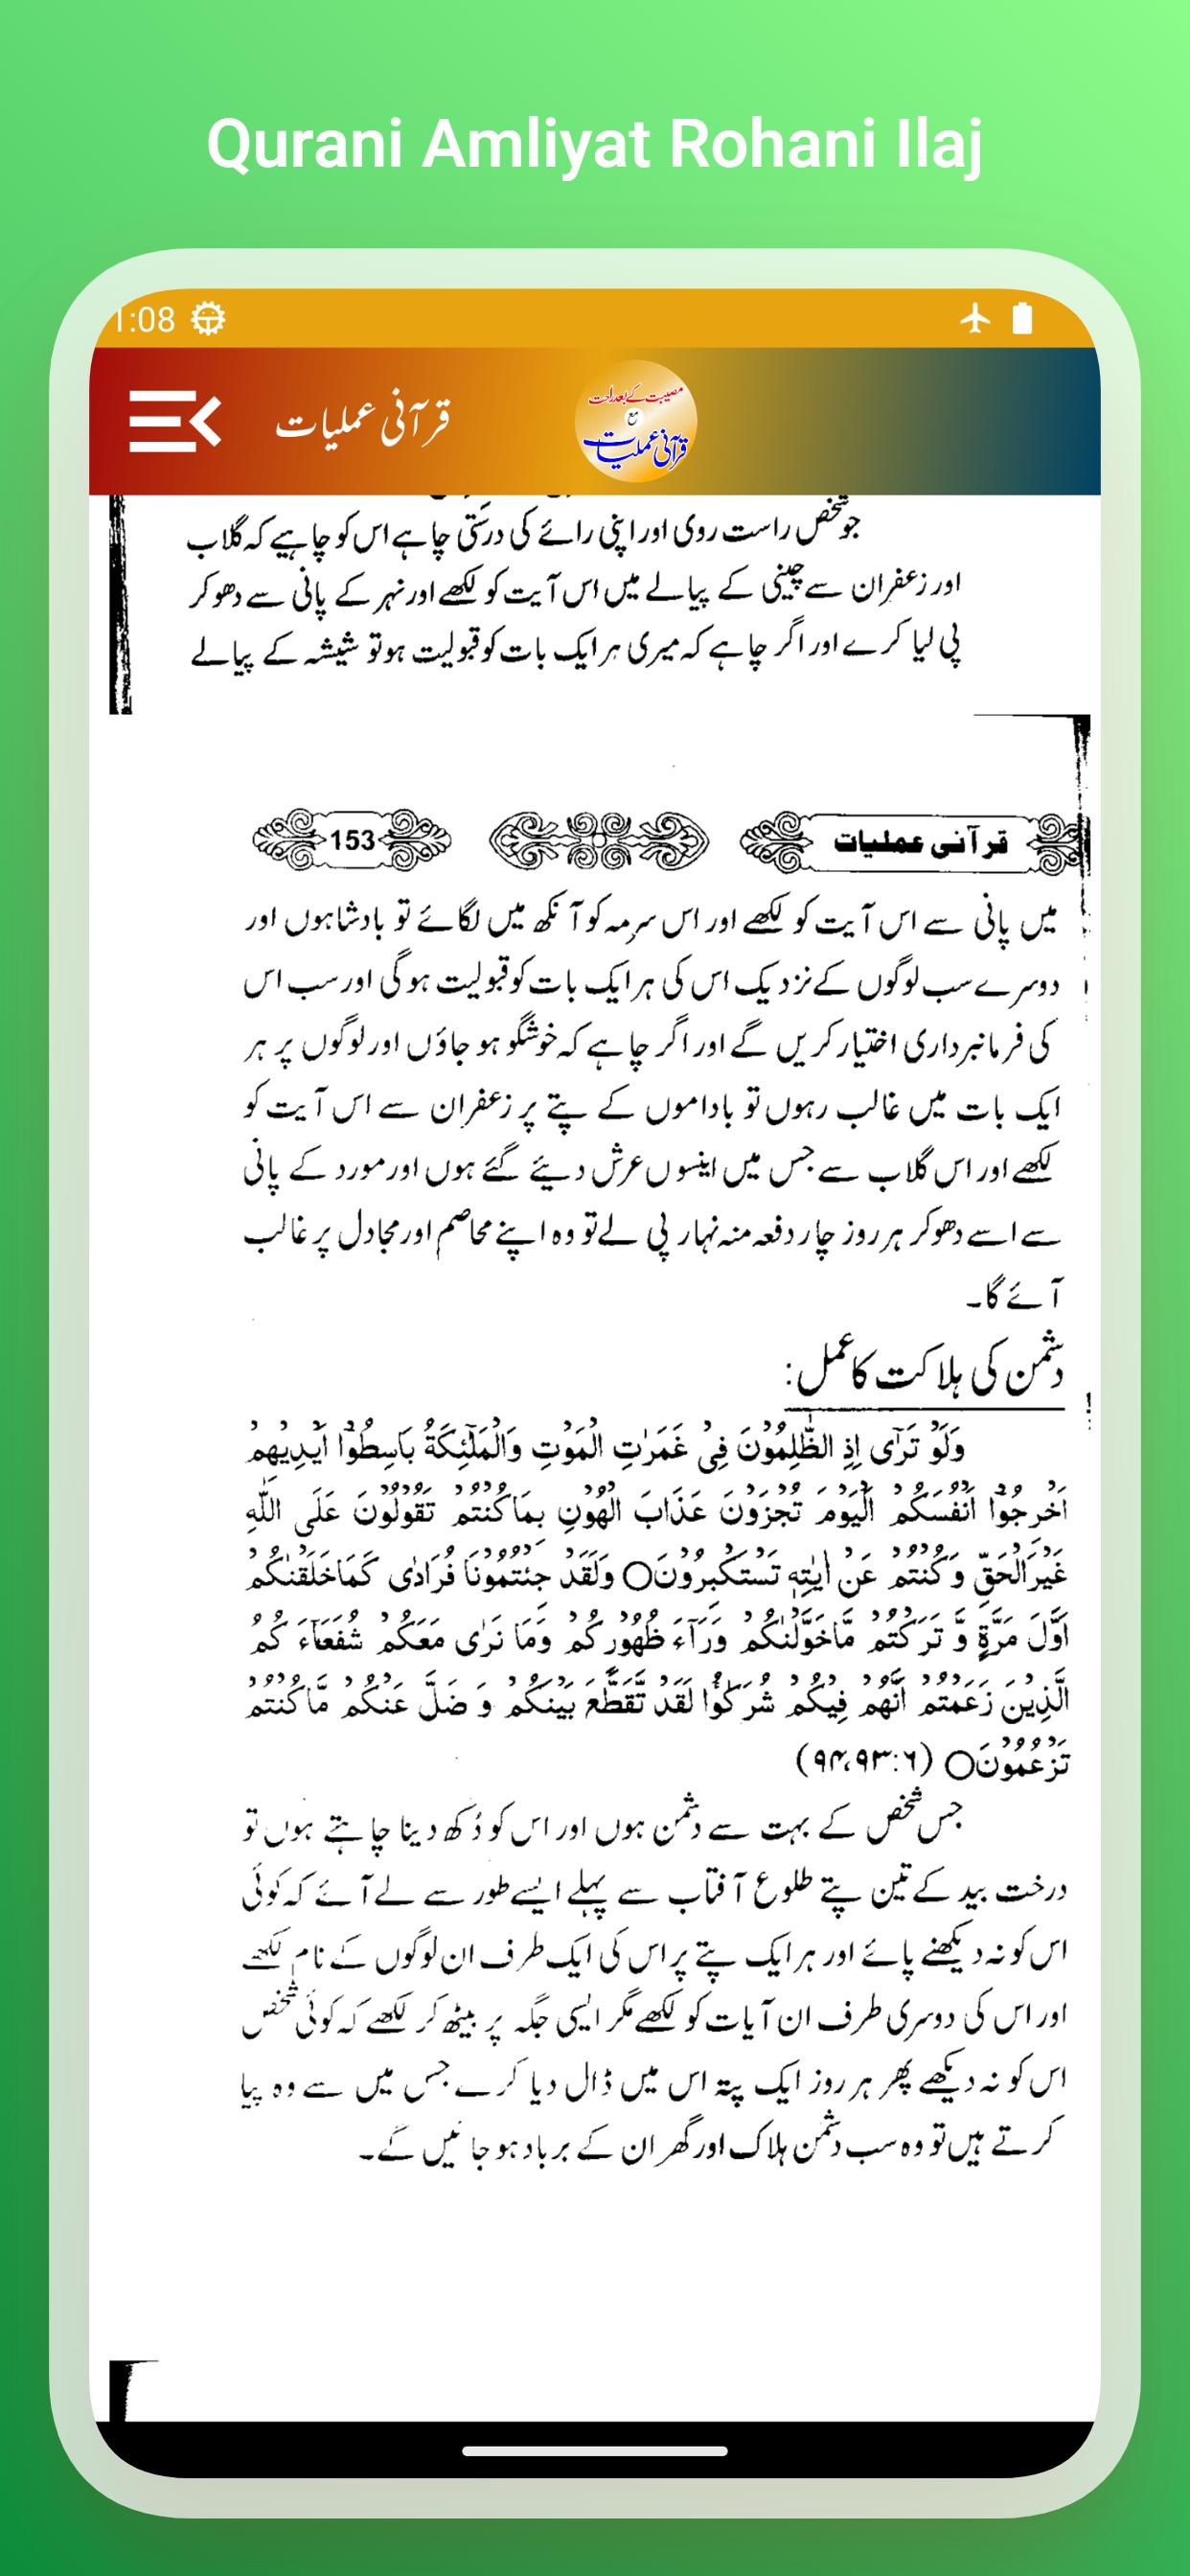 Qurani Amliyat Rohani Ilaj
1:08
قرآنی عملیات
مصیبت کے بعد راحت
مع
قرآنی عملیات
جو شخص راست روی اور اپنی رائے کی درستی چاہے اس کو چاہیے کہ گلاب
اور زعفران سے چینی کے پیالے میں اس آیت کو لکھے اور نہر کے پانی سے دھو کر
پی لیا کرے اور اگر چاہے کہ میری ہر ایک بات کو قبولیت ہو تو شیشہ کے پیالے
قرآنی عملیات
153
میں پانی سے اس آیت کو لکھے اور اس سرمہ کو آنکھ میں لگائے تو بادشاہوں اور
دوسرے سب لوگوں کے نزدیک اس کی ہر ایک بات کو قبولیت ہو گی اور سب اس
کی فرمانبرداری اختیار کریں گے اور اگر چاہے کہ خوشگو ہو جاؤں اور لوگوں پر ہر
ایک بات میں غالب رہوں تو باداموں کے پتے پر زعفران سے اس آیت کو
لکھے اور اس گلاب سے جس میں اینسوں عرش دیئے گئے ہوں اور مورد کے پانی
سے اسے دھو کر ہر روز چار دفعہ منہ نہار پی لے تو وہ اپنے مخاصم اور مجادل پر غالب
آئے گا۔
دشمن کی ہلاکت کا عمل:
وَلَوْ تَرٰٓى اِذِ الظّٰلِمُوْنَ فِىْ غَمَرٰتِ الْمَوْتِ وَالْمَلٰٓئِكَةُ بَاسِطُوْٓا اَيْدِيْهِمْ
اَخْرِجُوْٓا اَنْفُسَكُمْ اَلْيَوْمَ تُجْزَوْنَ عَذَابَ الْهُوْنِ بِمَا كُنْتُمْ تَقُوْلُوْنَ عَلَى اللّٰهِ
غَيْرَ الْحَقِّ وَكُنْتُمْ عَنْ اٰيٰتِهٖ تَسْتَكْبِرُوْنَ○ وَلَقَدْ جِئْتُمُوْنَا فُرَادٰى كَمَا خَلَقْنٰكُمْ
اَوَّلَ مَرَّةٍ وَّ تَرَكْتُمْ مَّا خَوَّلْنٰكُمْ وَرَآءَ ظُهُوْرِكُمْ وَمَا نَرٰى مَعَكُمْ شُفَعَآءَ كُمُ
الَّذِيْنَ زَعَمْتُمْ اَنَّهُمْ فِيْكُمْ شُرَكٰٓؤُا لَقَدْ تَّقَطَّعَ بَيْنَكُمْ وَ ضَلَّ عَنْكُمْ مَّا كُنْتُمْ
تَزْعُمُوْنَ○ (۶:۹۳،۹۴)
جس شخص کے بہت سے دشمن ہوں اور اس کو دُکھ دینا چاہتے ہوں تو
درخت بید کے تین پتے طلوع آفتاب سے پہلے ایسے طور سے لے آئے کہ کوئی
اس کو نہ دیکھنے پائے اور ہر ایک پتے پر اس کی ایک طرف ان لوگوں کے نام لکھے
اور اس کی دوسری طرف ان آیات کو لکھے مگر ایسی جگہ پر بیٹھ کر لکھے کہ کوئی شخص
اس کو نہ دیکھے پھر ہر روز ایک پتہ اس میں ڈال دیا کرے جس میں سے وہ پیا
کرتے ہیں تو وہ سب دشمن ہلاک اور گھر ان کے برباد ہو جائیں گے۔